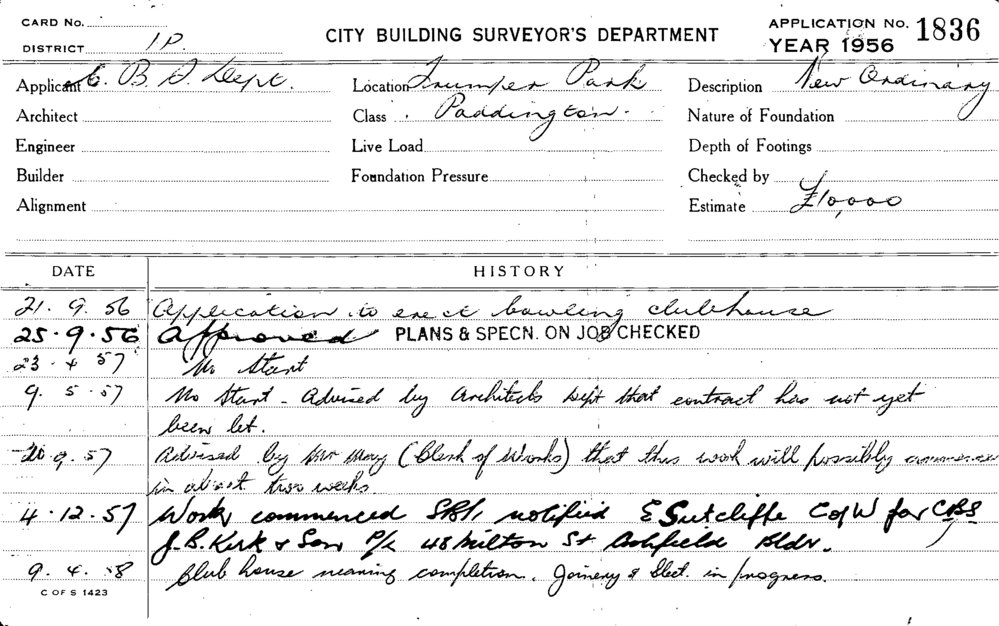 CARD No.
DISTRICT 1P.
CITY BUILDING SURVEYOR'S DEPARTMENT
APPLICATION No. 1836
YEAR 1956
Applicant C. B. S Dept.
Location Trumper Park
Description New Ordinary
Architect
Class Paddington.
Nature of Foundation
Engineer
Live Load
Depth of Footings
Builder
Foundation Pressure
Checked by
Alignment
Estimate £10,000
DATE
HISTORY
21. 9. 56 Application to erect bowling clubhouse
25.9.56 Approved PLANS & SPECN. ON JOB CHECKED
23. 4 57 No Start
9. 5.57 No Start - Advised by Architects Dept that contract has not yet
been let.
20.9.57 Advised by Mr May (Clerk of Works) that this work will possibly commence
in about two weeks.
4.12.57 Work commenced notified E Sutcliffe C of W for CBS
J.B. Kirk & Son P/L 48 Milton St Ashfield Bldr.
9. 4. 58 Club house nearing completion. Joinery & Elect. in progress.
C OF S 1423